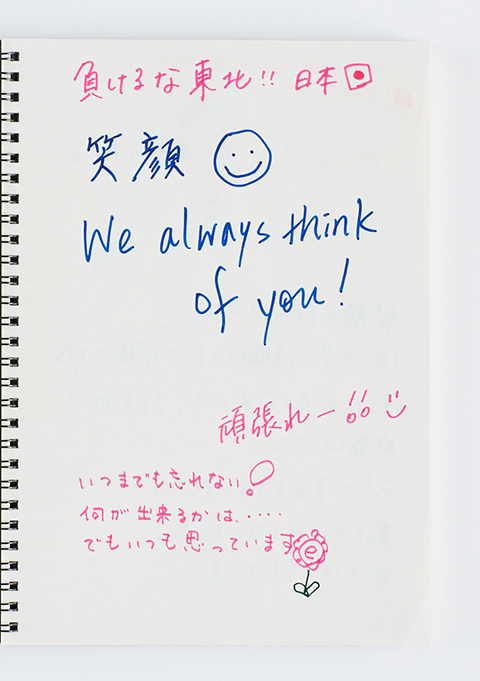 負けるな東北!! 日本
笑顔
We always think
of you!
頑張れー!!
いつまでも忘れない!
何が出来るかは、‥‥
でもいつも思っています
e